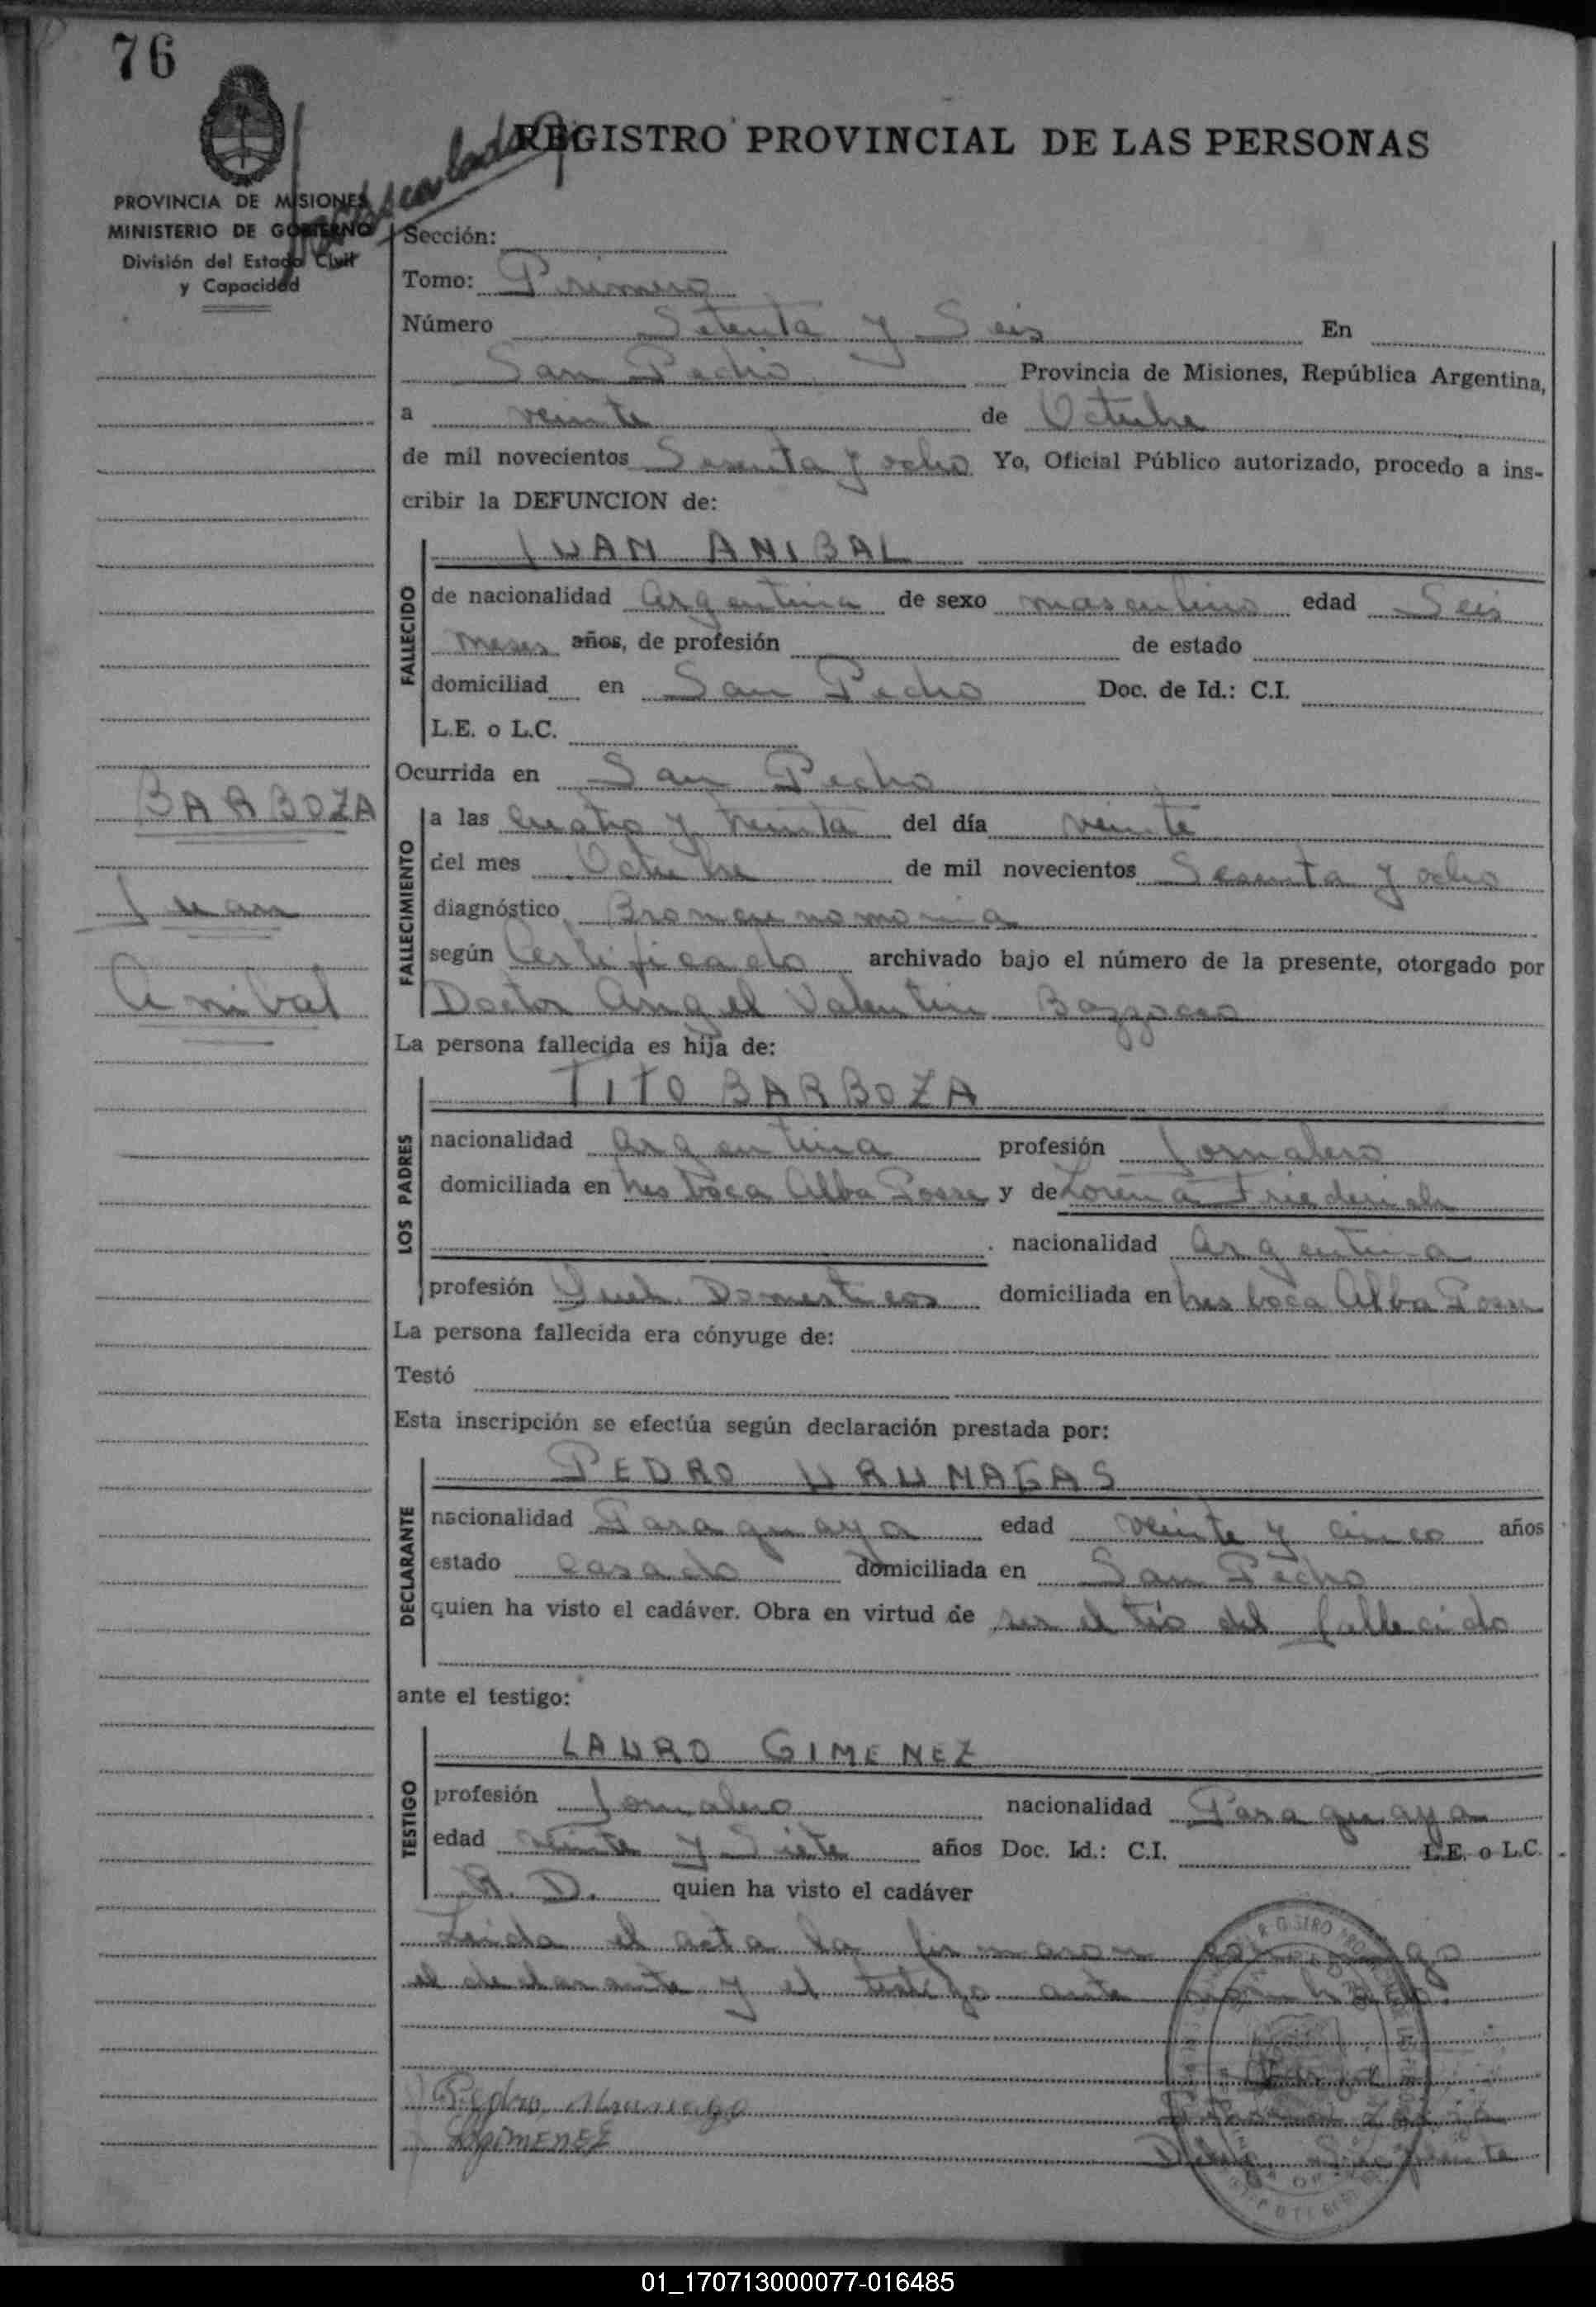 76
REGISTRO PROVINCIAL DE LAS PERSONAS
PROVINCIA DE MISIONES
MINISTERIO DE GOBIERNO
División del Estado Civil
y Capacidad
Sección:
Tomo: Primero
Número Setenta y Seis En
San Pedro Provincia de Misiones, República Argentina,
a veinte de Octubre
de mil novecientos Sesenta y ocho Yo, Oficial Público autorizado, procedo a ins-
cribir la DEFUNCION de:
JUAN ANIBAL
FALLECIDO
de nacionalidad Argentina de sexo masculino edad Seis
meses años, de profesión de estado
domiciliad en San Pedro Doc. de Id.: C.I.
L.E. o L.C.
Ocurrida en San Pedro
BARBOZA
Juan
Anibal
FALLECIMIENTO
a las cuatro y treinta del día veinte
del mes Octubre de mil novecientos Sesenta y ocho
diagnóstico Broneunomonia
según Certificado archivado bajo el número de la presente, otorgado por
Doctor Angel Valentin Bazzocco
La persona fallecida es hija de:
LOS PADRES
TITO BARBOZA
nacionalidad Argentina profesión Jornalero
domiciliada en tres boca Alba Posse y de Lorena Friederich
nacionalidad Argentina
profesión Queh. Domesticos domiciliada en tres boca Alba Posse
La persona fallecida era cónyuge de:
Testó
Esta inscripción se efectúa según declaración prestada por:
DECLARANTE
PEDRO URUNAGAS
nacionalidad Paraguaya edad veinte y cinco años
estado casado domiciliada en San Pedro
quien ha visto el cadáver. Obra en virtud de ser el tio del fallecido
ante el testigo:
TESTIGO
LAURO GIMENEZ
profesión Jornalero nacionalidad Paraguaya
edad veinte y Siete años Doc. Id.: C.I. L.E. o L.C.
R. D. quien ha visto el cadáver
Leida el acta la firmaron conmigo
el declarante y el testigo ante
Pedro
GIMENEZ
01_170713000077-016485